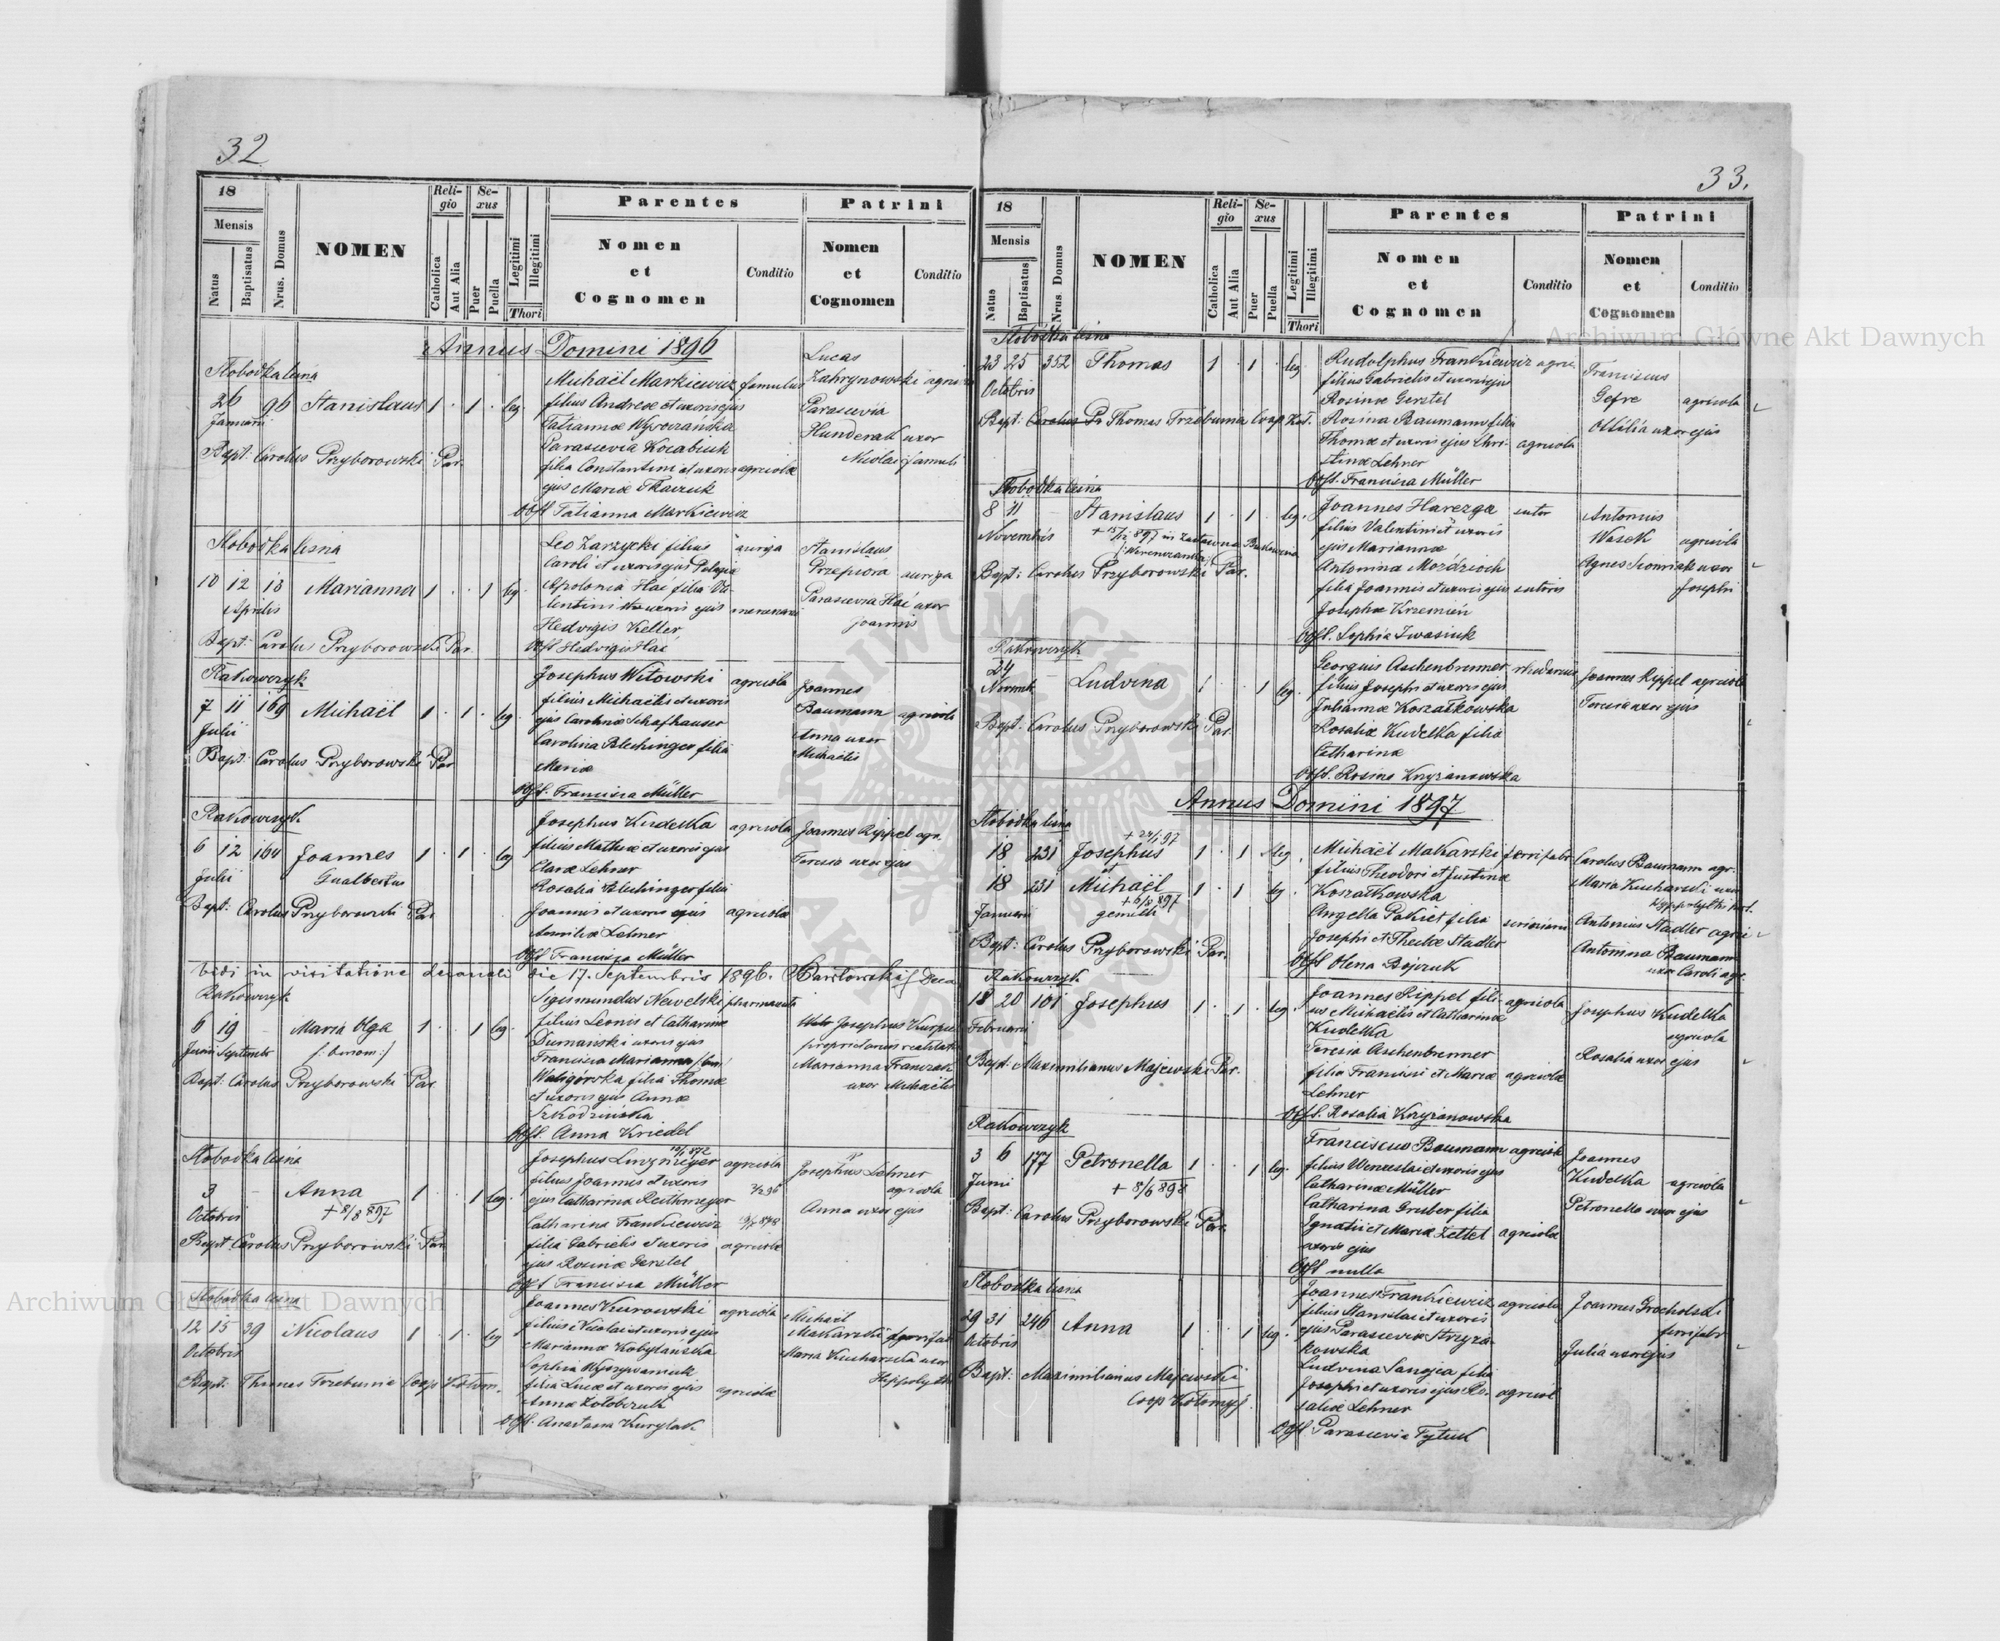 32
18
Mensis
Natus
Baptisatus
Nrus. Domus
NOMEN
Religio
Catholica
Aut Alia
Sexus
Puer
Puella
Legitimi
Illegitimi
Thori
Parentes
Nomen
et
Cognomen
Conditio
Patrini
Nomen
et
Cognomen
Conditio
Annus Domini 1896
Słobodka leśna
26 96 Stanislaus 1 · 1 · leg.
Januarii
Bapt: Carolus Przyborowski Par.
Michaël Markiewicz famulus
filius Andreæ et uxoris ejus
Tatiannæ
Parascevia
filia Constantini et uxoris agricolæ
ejus Mariæ Tkaczuk
Obst Tatianna Markiewicz
Lucas
Parascevia
Hunderak uxor
Nicolai famuli
Słobodka leśna
10 12 13 Marianna 1 · · 1 leg.
Aprilis
Bapt: Carolus Przyborowski Par.
Leo Zarzycki filius auriga
Caroli et uxoris ejus Pelagiæ
Apolonia Hać filia Va-
lentini et uxoris ejus
Hedvigis Keller
Obst Hedvigis Hać
Stanislaus
Przepiora auriga
Parascevia Hać uxor
Joannis
Rakowczyk
7 11 169 Michaël 1 · 1 · leg.
Julii
Bapt: Carolus Przyborowski Par
Josephus Witowski agricola
filius Michaëlis et uxoris
ejus Carolinæ Schafhauser
Carolina Blechinger filia
Mariæ
Obst. Francisca Müller
Joannes
Baumann agricola
Anna uxor
Michaëlis
Rakowczyk
6 12 164 Joannes 1 · 1 · leg
Julii Gualbertus
Bapt: Carolus Przyborowski Par
Josephus Kudelka agricola
filius Mathiæ et uxoris ejus
Claræ Lehner
Rosalia Blechinger filia
Joannis et uxoris ejus agricolæ
Lehner
Obst Francisca Müller
Joannes Rippel agr.
Teresia uxor ejus
Vidi in visitatione decanali die 17. Septembris 1896.
Rakowczyk
6 19 Maria Olga 1 · · 1 leg.
Junii Septembr
Bapt: Carolus Przyborowski Par
Sigismundus Newelski pharmaceuta
filius Leonis et Catharinæ
Dumanski uxoris ejus
Francisca Marianna
Waligórska filia Thomæ
et uxoris ejus Annæ
Obst. Anna Kriedel
Josephus Kurpiel
proprietarius realitatis
Marianna
uxor Michaëlis
Słobodka leśna
3 Anna 1 · · 1 leg.
Octobris + 8/8 897
Bapt Carolus Przyborowski Par
Josephus Linzmeyer agricola
filius Joannis et uxoris
ejus Catharinæ Reithmeyer
Catharina Frankiewicz
filia Gabrielis et uxoris agricolæ
ejus Rosinæ Gerstel
Obst Francisca Müller
Josephus Lehner
agricola
Anna uxor ejus
Słobodka leśna
12 15 39 Nicolaus 1 · 1 · leg
Octobris
Bapt: Thomas Trzebunia Coop
Joannes Kurowski agricola
filius Nicolai et uxoris ejus
Mariannæ Kobylańska
Sophia
filia Lucæ et uxoris ejus agricolæ
Annæ
Obst. Anastasia Kurylak
Michaël
Makarski
Maria Kucharska uxor
Hippolyti
33.
18
Mensis
Natus
Baptisatus
Nrus. Domus
NOMEN
Religio
Catholica
Aut Alia
Sexus
Puer
Puella
Legitimi
Illegitimi
Thori
Parentes
Nomen
et
Cognomen
Conditio
Patrini
Nomen
et
Cognomen
Conditio
Słobodka leśna
23 25 352 Thomas 1 · 1 · leg
Octobris
Bapt: Carolus Pr Thomas Trzebunia Coop Koł.
Rudolphus Frankiewicz agric.
filius Gabrielis et uxoris ejus
Rosinæ Gerstel
Rosina Baumann filia
Thomæ et uxoris ejus Chri- agricola
stinæ Lehner
Obst. Francisca Müller
Franciscus
Gefre agricola
Ottilia uxor ejus
Słobodka leśna
8 11 Stanislaus 1 · 1 · leg.
Novembris
Bapt: Carolus Przyborowski Par.
Joannes Harezga sutor
filius Valentini et uxoris
ejus Mariannæ
Antonina Moździoch
filia Joannis et uxoris ejus sutoris
Josephæ Krzemień
Obst. Sophia Iwasiuk
Antonius
Wasek agricola
Agnes uxor
Josephi
Rakowczyk
24 Ludvina 1 · · 1 leg.
Novemb
Bapt: Carolus Przyborowski Par.
Georgius Aschenbrenner rhedarius
filius Josephi et uxoris ejus
Juliannæ Korzałkowska
Rosalia Kudelka filia
Catharinæ
Obst. Rosina Kryżanowska
Joannes Rippel agricola
Teresia uxor ejus
Annus Domini 1897
Słobodka leśna
+ 24/1 97
18 231 Josephus 1 · 1 leg.
et
18 231 Michaël 1 · 1 leg.
+ 6/8 897
Januarii gemelli
Bapt: Carolus Przyborowski Par.
Michaël Makarski ferrifabr.
filius Theodori et Justinæ
Koszałkowska
Angella Pakiet filia
Josephi et Theclæ Stadler
Obst Olena Bojczuk
Carolus Baumann agr.
Maria Kucharski uxor
Antonius Stadler agric
Antonina Baumann
uxor Caroli agr.
Rakowczyk
18 20 101 Josephus 1 · 1 · leg.
Februarii
Bapt: Maximilianus Majewski Par.
Joannes Rippel fili- agricola
us Michaëlis et Catharinæ
Kudelka
Teresia Aschenbrenner
filia Francisci et Mariæ agricolæ
Lehner
Obst. Rosalia Kryżanowska
Josephus Kudelka
agricola
Rosalia uxor ejus
Rakowczyk
3 6 177 Petronella 1 · · 1 leg.
Junii + 8/6 898
Bapt: Carolus Przyborowski Par.
Franciscus Baumann agricola
filius Wenceslai et uxoris ejus
Catharinæ Müller
Catharina Gruber filia
Ignatii et Mariæ Zettel agricolæ
uxoris ejus
Obst nulla
Joannes
Kudelka agricola
Petronella uxor ejus
Słobodka leśna
29 31 246 Anna 1 · · 1 leg.
Octobris
Bapt: Maximilianus Majewski
Coop Kołomyj.
Joannes Frankiewicz agricola
filius Stanislai et uxoris
ejus Parasceviæ Stryza-
kowska
Ludvina filia
Josephi et uxoris ejus Ro- agricol
saliæ Lehner
Obst Parascevia Tytuk
Joannes Grocholski
ferrifabr
Julia uxor ejus
Archiwum Główne Akt Dawnych
Archiwum Główne Akt Dawnych